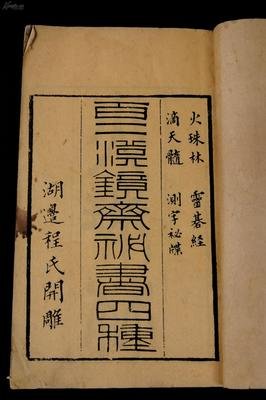 火珠林 靈碁經
滴天髓 測字祕牒
百二漢鏡齋祕書四種
湖邊程氏開雕